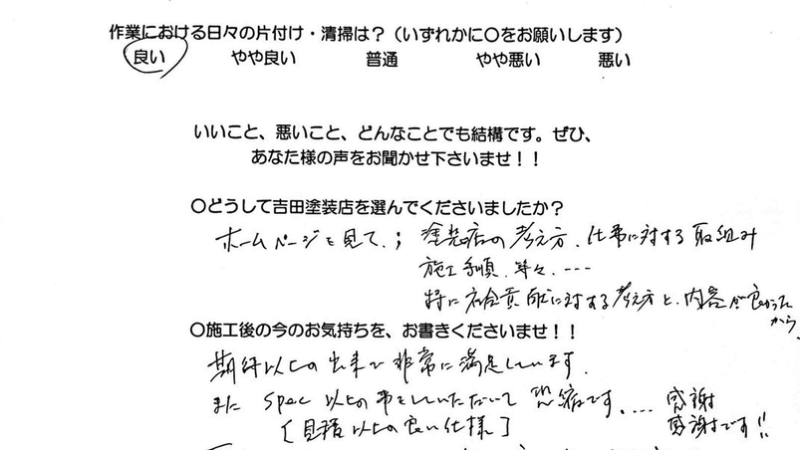 作業における日々の片付け・清掃は？（いずれかに〇をお願いします）
良い やや良い 普通 やや悪い 悪い
いいこと、悪いこと、どんなことでも結構です。ぜひ、
あなた様の声をお聞かせ下さいませ！！
〇どうして吉田塗装店を選んでくださいましたか？
ホームページを見て、; 塗装店の考え方、仕事に対する取組み
施工手順、等々、----
特に社会貢献に対する考え方と、内容が良かった
から、
〇施工後の今のお気持ちを、お書きくださいませ！！
期待以上の出来で非常に満足しています。
また spec 以上の事をしていただいて恐縮です。.... 感謝
[見積以上の良い仕様] 感謝です!!